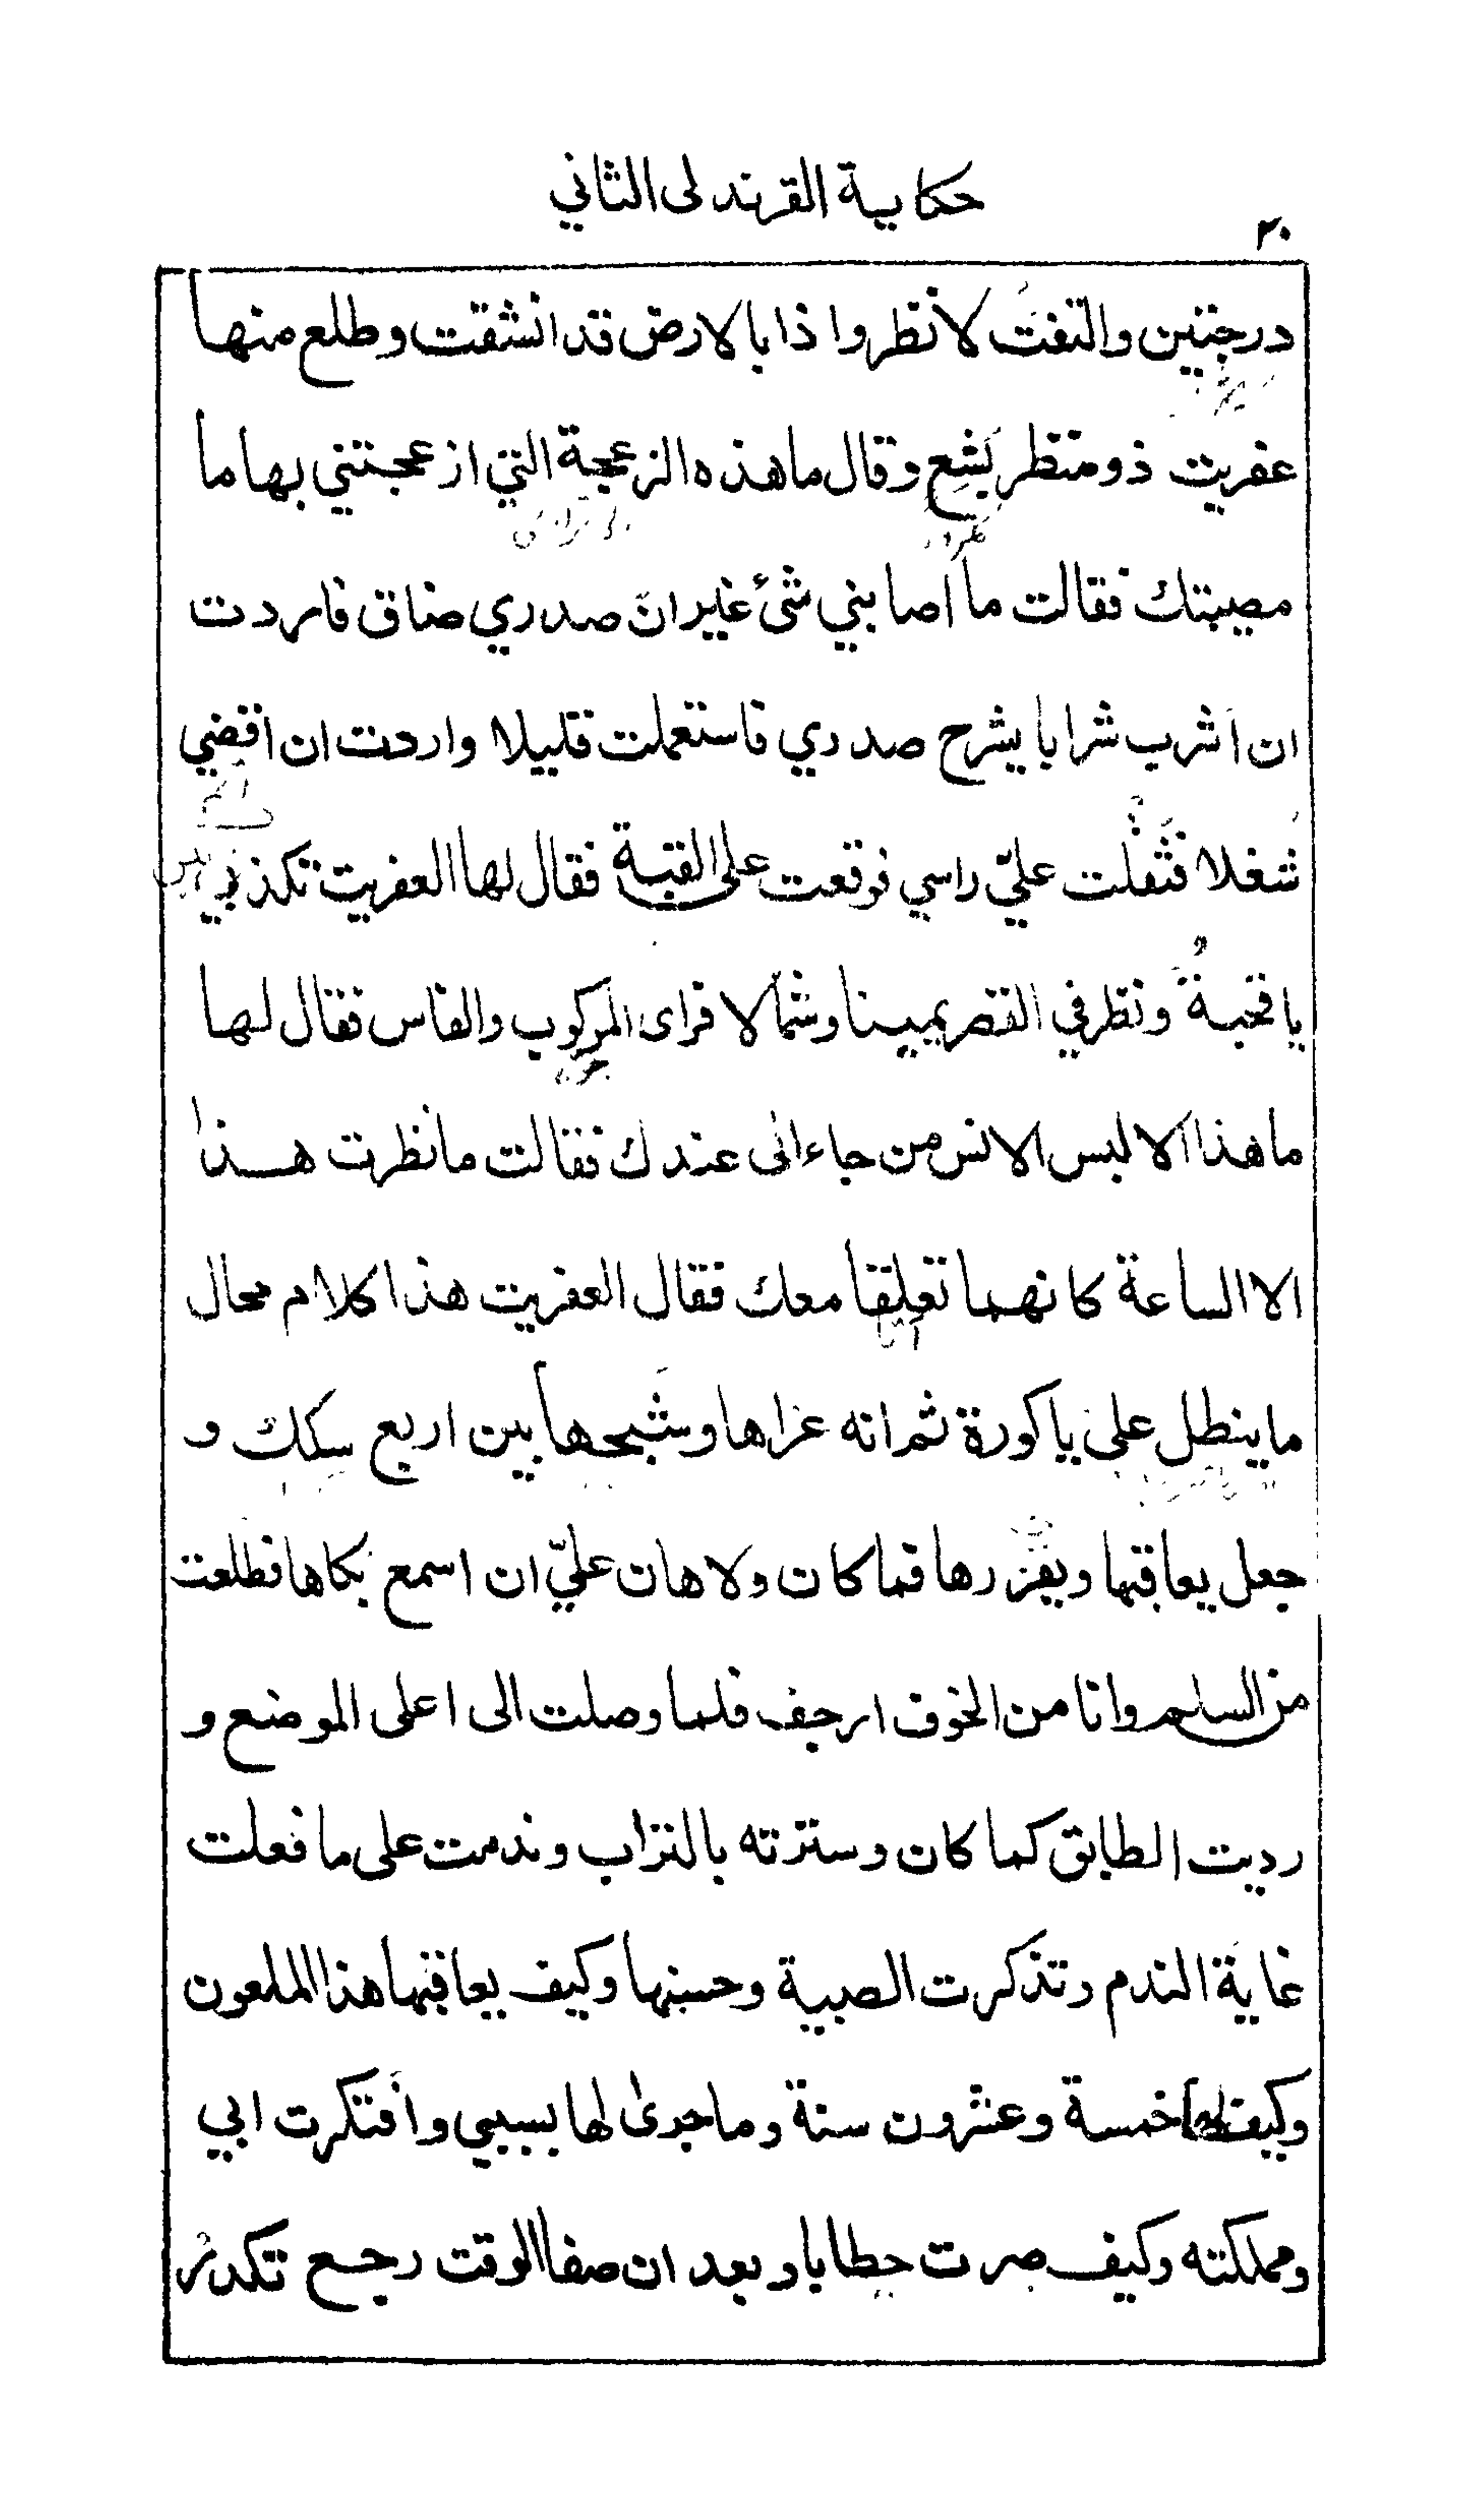 حكاية القرندلى الثاني
٣٠
درجتين والتفتُ لانظر واذا بالارض قد انشقت وطلع منها
عفريت ذو منظر بَشِع وقال ما هذه الزعجة التي ازعجتني بها ما
مصيبتك فقالت ما اصابني شئ غير ان صدري ضاق فاردت
ان اَشرب شرابا يشرح صدري فاستعملت قليلا واردت ان اقضي
شغلا فثَقُلت عليّ راسي فوقعت على القبة فقال لها العفريت تكذبي
يا قحبةُ ونظر في القصر يمينا وشمالا فراى المركوب والفاس فقال لها
ما هذا الا لبس الانس من جاء الى عندك فقالت ما نظرت هذا
الا الساعة كانهما تعلقا معك فقال العفريت هذا كلام محال
ما ينطل على يا كورة ثم انه عراها وشَبحها بين اربع سكك و
جعل يعاقبها ويقررها فما كان ولا هان عليّ ان اسمع بكاها فطلعت
من السلم وانا من الخوف ارجف فلما وصلت الى اعلى الموضع و
رديت الطابق كما كان وسترته بالتراب وندمت على ما فعلت
غاية الندم وتذكرت الصبية وحسنها وكيف يعاقبها هذا الملعون
وكيف لها خمسة وعشرون سنة وما جرى لها بسببي وافتكرت ابي
ومملكته وكيف صرت حطابا وبعد ان صفا الوقت رجع تكدر